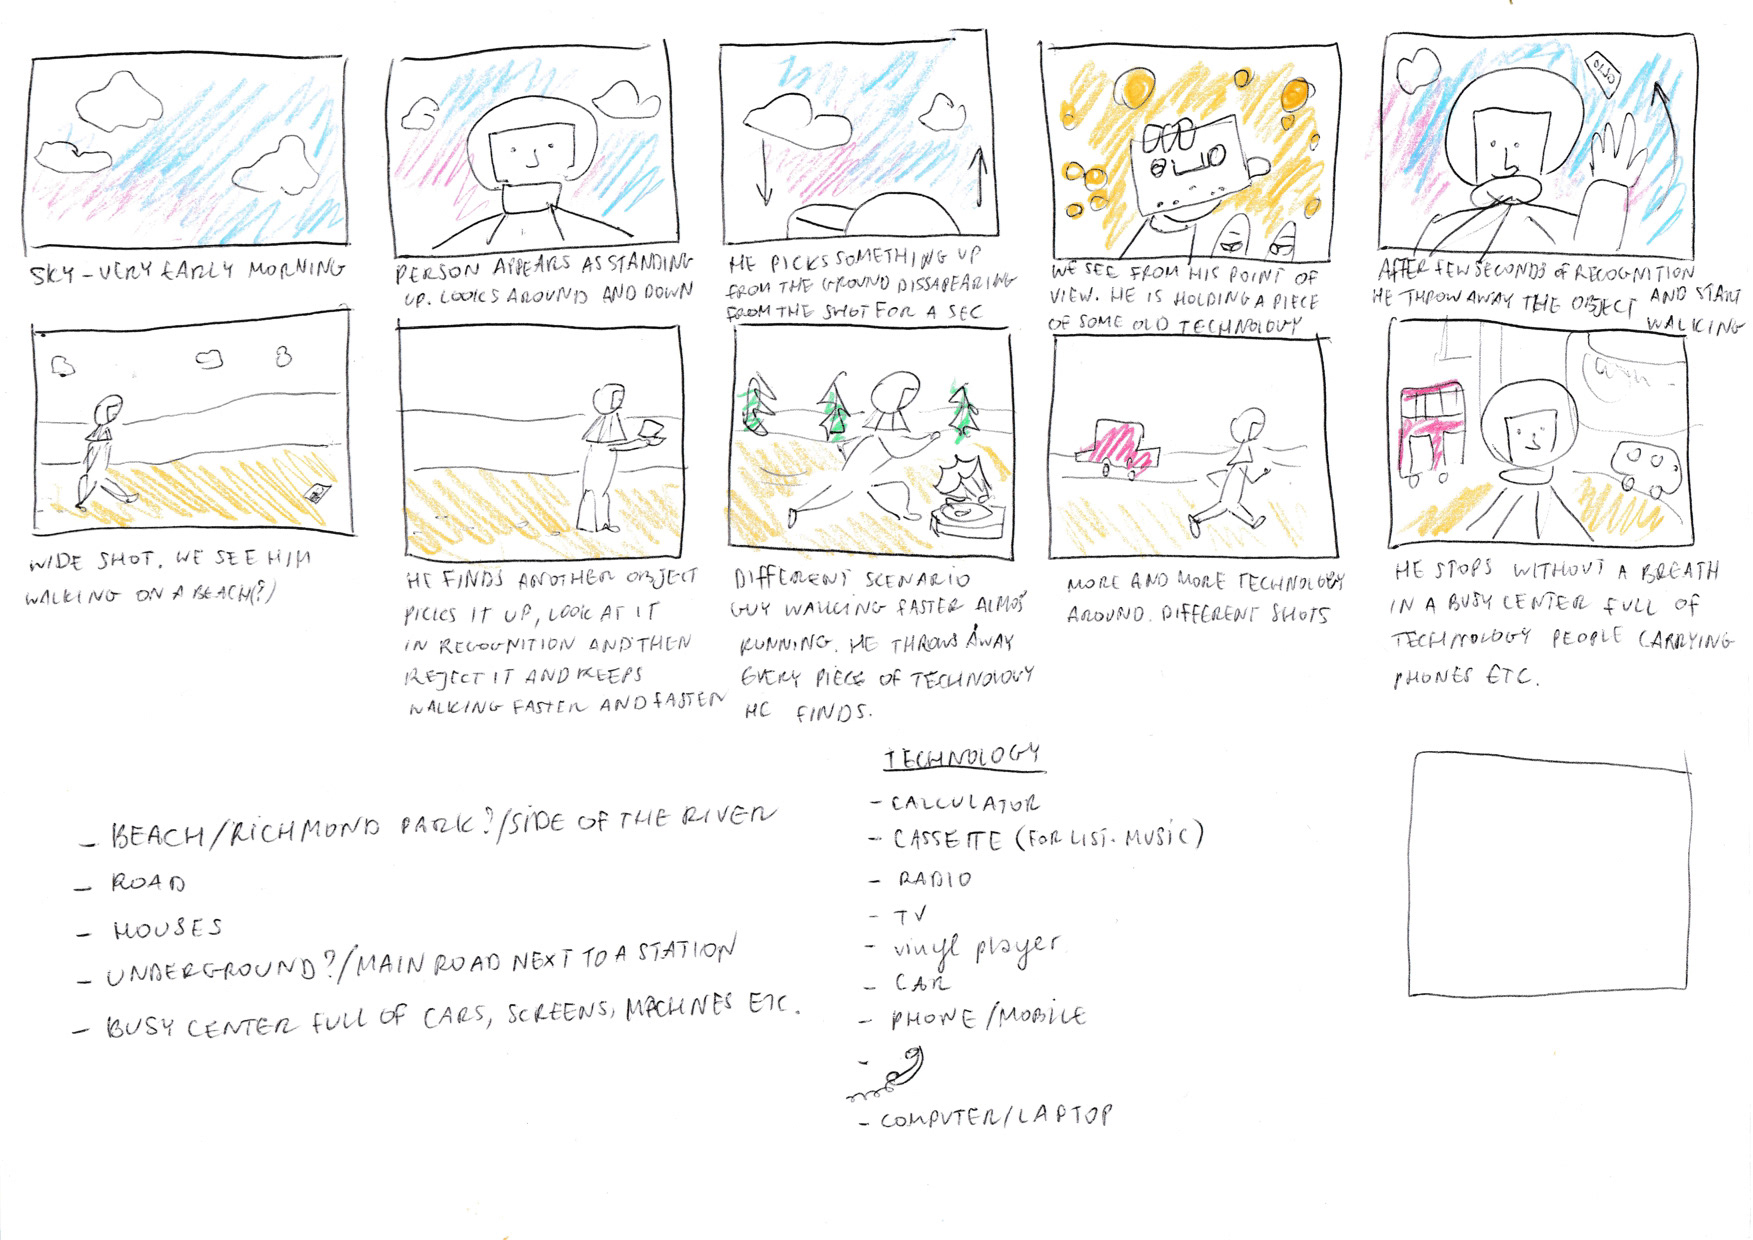 SKY - VERY EARLY MORNING
PERSON APPEARS AS STANDING
UP. LOOKS AROUND AND DOWN
HE PICKS SOMETHING UP
FROM THE GROUND DISSAPEARING
FROM THE SHOT FOR A SEC
WE SEE FROM HIS POINT OF
VIEW. HE IS HOLDING A PIECE
OF SOME OLD TECHNOLOGY
AFTER FEW SECONDS OF RECOGNITION
HE THROW AWAY THE OBJECT AND START
WALKING
WIDE SHOT. WE SEE HIM
WALKING ON A BEACH(?)
HE FINDS ANOTHER OBJECT
PICKS IT UP, LOOK AT IT
IN RECOGNITION AND THEN
REJECT IT AND KEEPS
WALKING FASTER AND FASTER
DIFFERENT SCENARIO
GUY WALKING FASTER ALMOS
RUNNING. HE THROWS AWAY
EVERY PIECE OF TECHNOLOGY
HE FINDS.
MORE AND MORE TECHNOLOGY
AROUND. DIFFERENT SHOTS
HE STOPS WITHOUT A BREATH
IN A BUSY CENTER FULL OF
TECHNOLOGY PEOPLE CARRYING
PHONES ETC.
- BEACH/RICHMOND PARK?/SIDE OF THE RIVER
- ROAD
- HOUSES
- UNDERGROUND?/MAIN ROAD NEXT TO A STATION
- BUSY CENTER FULL OF CARS, SCREENS, MACHINES ETC.
TECHNOLOGY
- CALCULATOR
- CASSETTE (FOR LIST. MUSIC)
- RADIO
- TV
- vinyl player
- CAR
- PHONE/MOBILE
-
- COMPUTER/LAPTOP